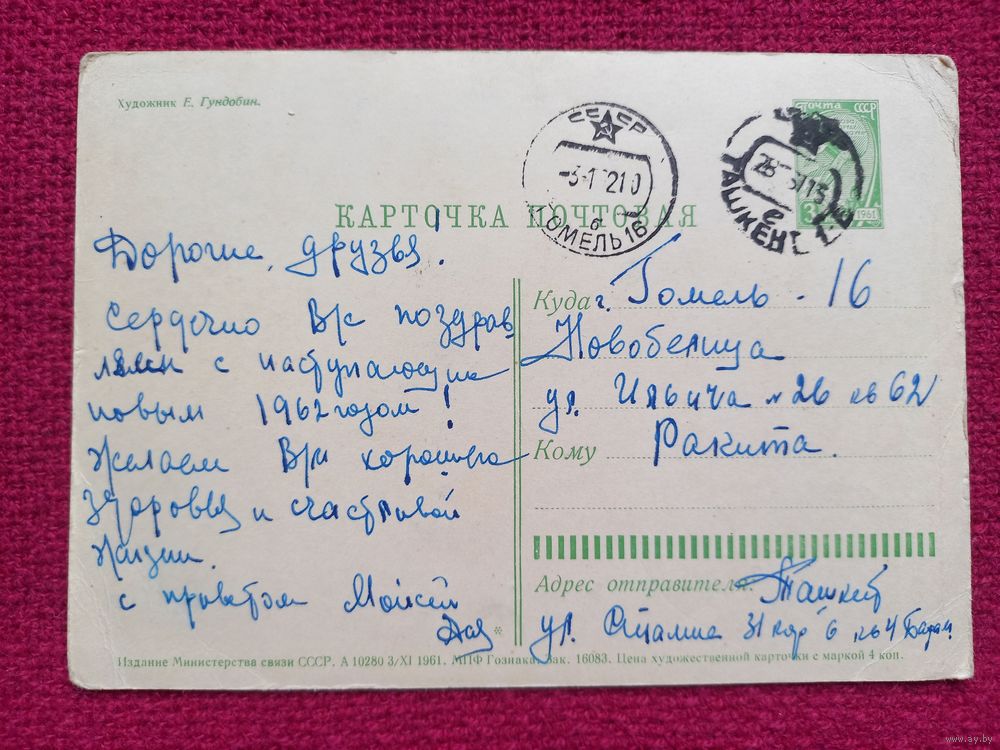 Художник Е. Гундобин.
Почта СССР
3
1961
СССР
-3-1 210
б
ГОМЕЛЬ 16
ТАШКЕНТ
е
КАРТОЧКА ПОЧТОВАЯ
Дорогие друзья!
Сердечно Вас поздрав
ляем с наступающим
новым 1962 годом!
Желаем Вам хорошего
здоровья и счастливой
жизни.
с приветом Моисей
Куда г. Гомель - 16
Новобелица
ул. Ильича № 26 кв 62
Кому Ракита.
Адрес отправителя: Ташкент
ул. Сталина 31 кор 6 кв 4
Издание Министерства связи СССР. А 10280 3/XI 1961. МПФ Гознака. Зак. 16083. Цена художественной карточки с маркой 4 коп.
www.ay.by